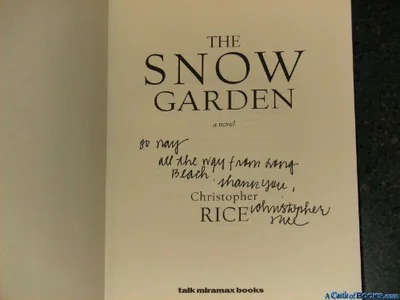 THE
SNOW
GARDEN
a novel
to Ray
all the way from Long
Beach. thank you,
Christopher
RICE
Christopher
Rice
talk miramax books
A Castle of BOOKS.com